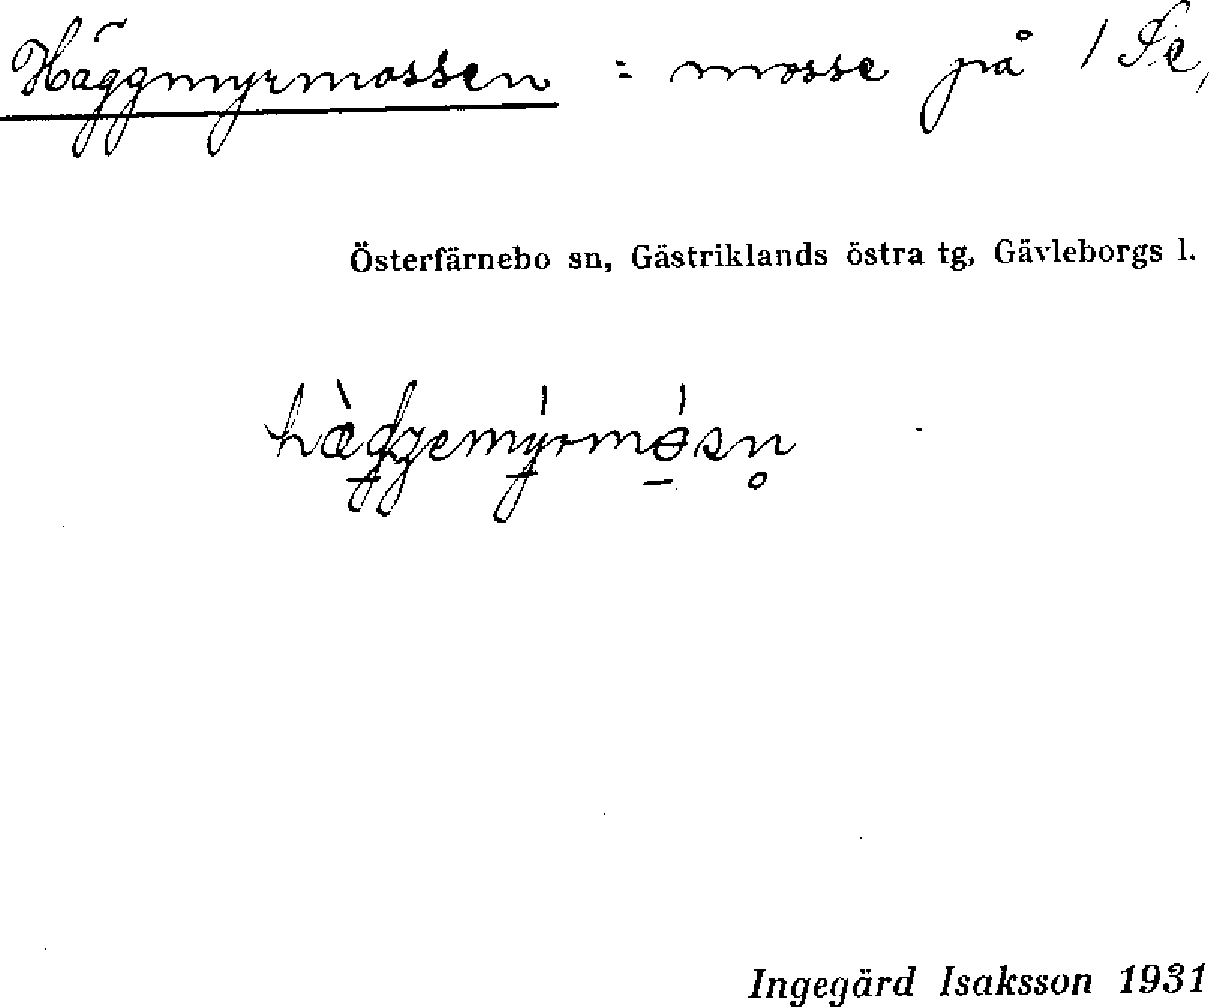 Häggmyrmossen = mosse på 1 Se,
Österfärnebo sn, Gästriklands östra tg, Gävleborgs l.
Ingegärd Isaksson 1931